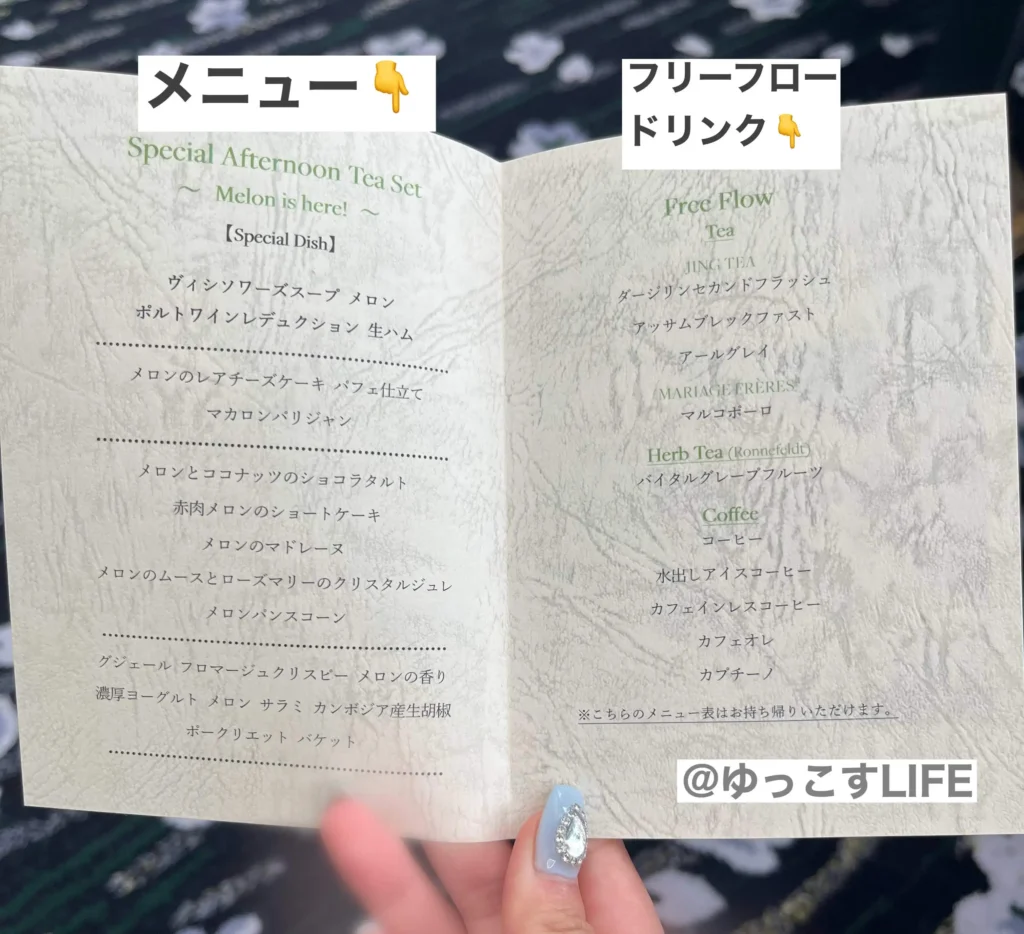 メニュー👇
Special Afternoon Tea Set
～ Melon is here! ～
【Special Dish】
ヴィシソワーズスープ メロン
ポルトワインレデュクション 生ハム
メロンのレアチーズケーキ パフェ仕立て
マカロンパリジャン
メロンとココナッツのショコラタルト
赤肉メロンのショートケーキ
メロンのマドレーヌ
メロンのムースとローズマリーのクリスタルジュレ
メロンパンスコーン
グジェール フロマージュクリスピー メロンの香り
濃厚ヨーグルト メロン サラミ カンボジア産生胡椒
ポークリエット バケット
フリーフロー
ドリンク👇
Free Flow
Tea
JING TEA
ダージリンセカンドフラッシュ
アッサムブレックファスト
アールグレイ
MARIAGE FRÈRES
マルコポーロ
Herb Tea (Ronnefeldt)
バイタルグレープフルーツ
Coffee
コーヒー
水出しアイスコーヒー
カフェインレスコーヒー
カフェオレ
カプチーノ
※こちらのメニュー表はお持ち帰りいただけます。
@ゆっこすLIFE